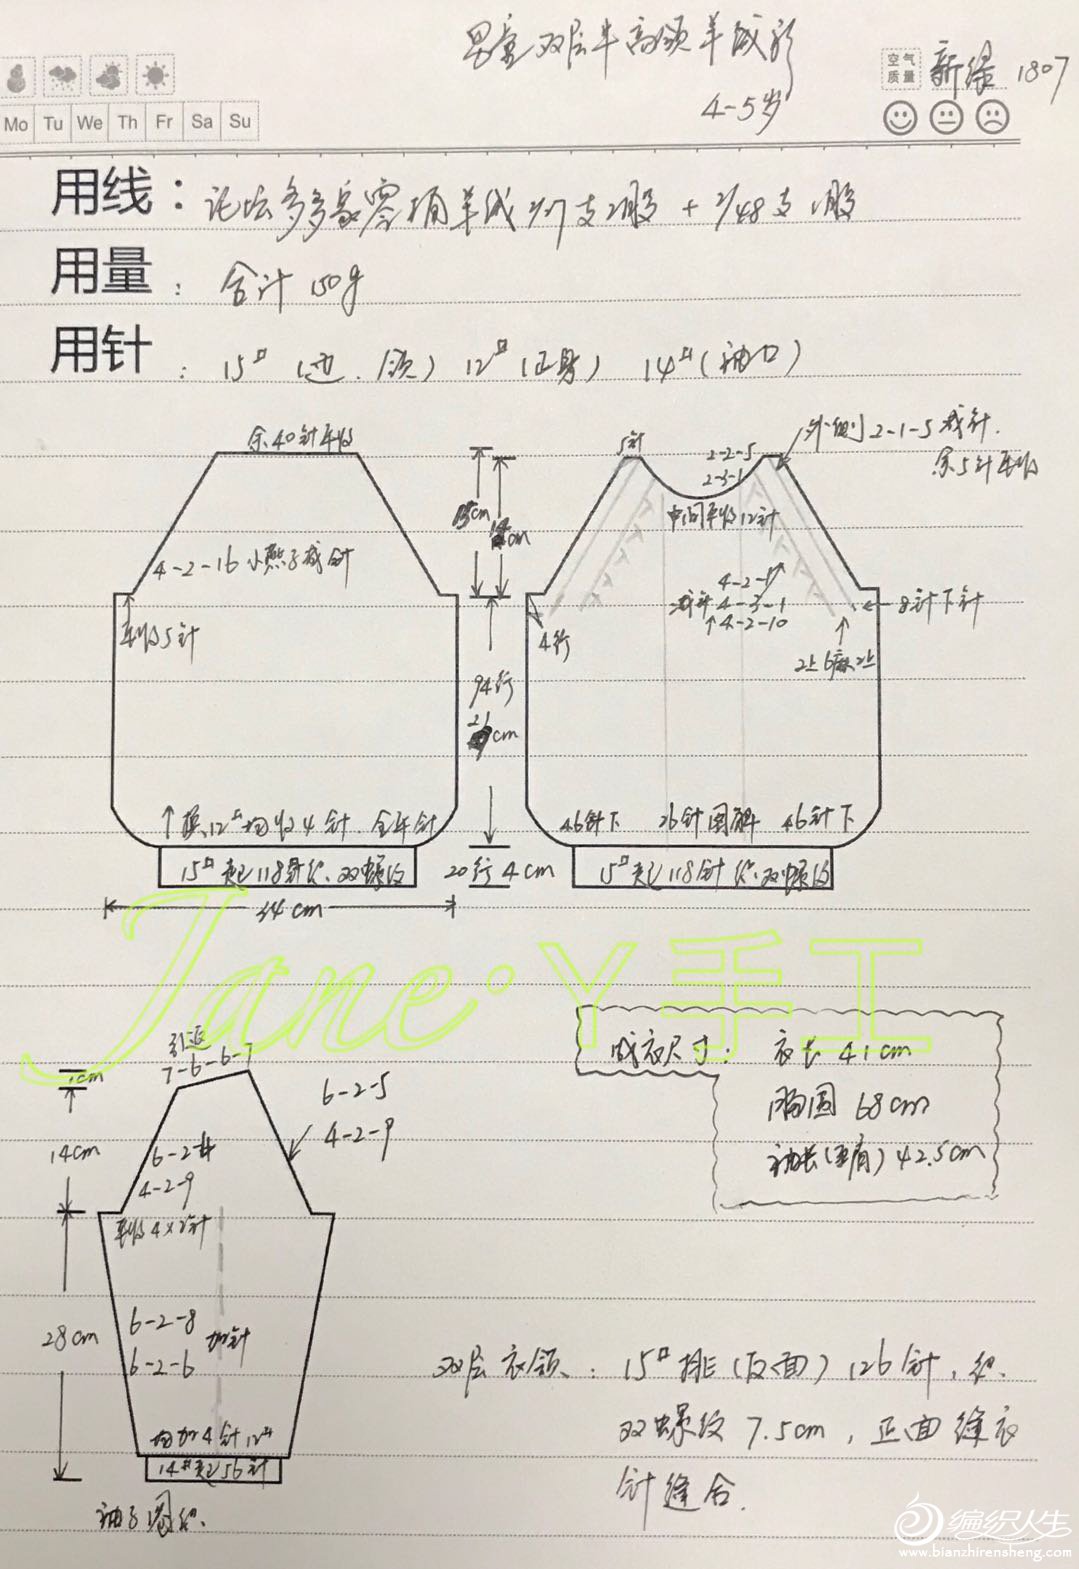 男童双层半高领羊绒衫
4-5岁
空气
质量
新绿 1807
Mo Tu We Th Fr Sa Su
用线：论坛多多家零捅羊绒2/27支2股 + 2/48支1股
用量：合计 150g
用针：15# (边、领) 12# (正身) 14# (袖口)
余40针平收
5针
2-2-5
2-3-1
外侧2-1-5减针.
余5针平收
中间平收12针
15cm
14cm
4-2-16 小燕子减针
4-2-1
减针 4-3-1
↑4-2-10
8针下针
平收5针
4行
2上6麻2上
94行
21cm
↑换12#均收4针.全平针
46针下
26针图解
46针下
15#起118针织.双螺纹
20行 4cm
15#起118针织.双螺纹
34cm
Jane·Y手工
引返
7-6-6-7
1cm
成衣尺寸：衣长 41cm
胸围 68cm
袖长(至肩) 42.5cm
6-2-5
4-2-9
14cm
6-2-4
4-2-9
平收4×2针
28cm
6-2-8
6-2-6
加针
均加4针12#
14#起56针
袖子圈织.
双层衣领：15#挑(反面)126针,织.
双螺纹7.5cm,正面缝衣
针缝合.
编织人生
www.bianzhirensheng.com